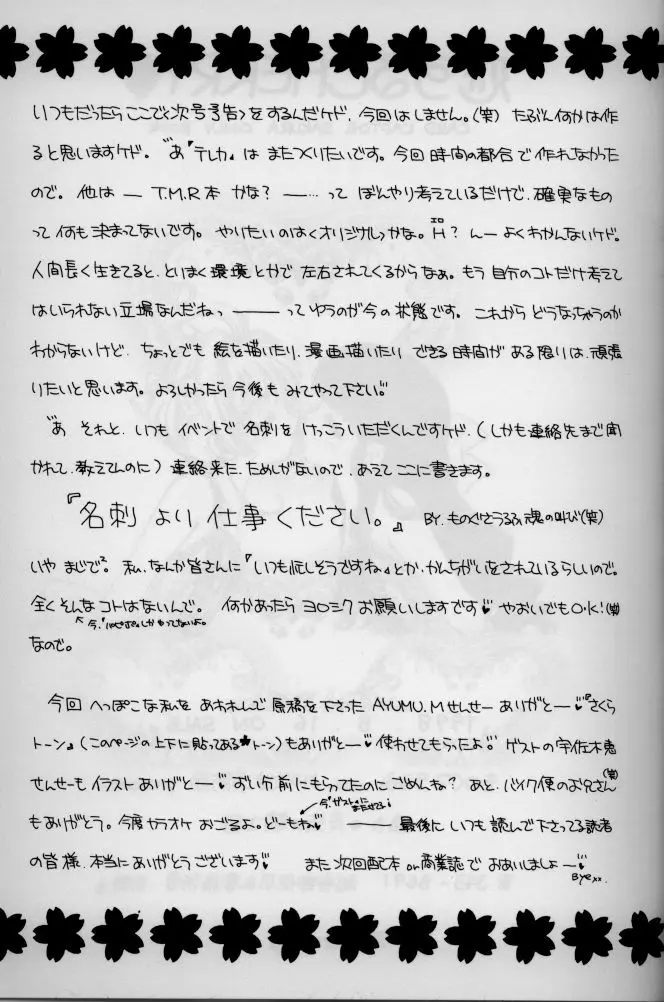 いつもだったらここで<次号予告>をするんだケド、今回はしません。(笑) たぶん何かは作
ると思いますケド。"あ『テレカ』はまたつくりたいです。今回時間の都合で作れなかった
ので。他は — T.M.R本 かな? —…って ぼんやり考えているだけで、確実なもの
って何も決まってないです。やりたいのは<オリジナル>っかな。H?んーよくわかんないケド。
エロ
人間長く生きてると、とりまく環境とかで左右されてくるからなぁ。もう自分のコトだけ考えて
はいられない立場なんだねっ ——— ってゆうのが今の状態です。これからどうなっちゃうのか
わからないけど、ちょっとでも絵を描いたり、漫画描いたりできる時間がある限りは、頑張
りたいと思います。よろしかったら今後もみてやって下さい!!
"あ それと、いつもイベントで名刺をけっこういただくんですケド、(しかも連絡先まで聞
かれて、教えてんのに)連絡来た、ためしがないので、あえてここに書きます。
『名刺より仕事ください。』 BY.ものぐさうるふ魂の叫び(笑)
いやまじで。私、なんか皆さんに『いつも忙しそうですね』とか、かんちがいをされているらしいので。
全くそんなコトはないんで。何かあったらヨロシクお願いしますです♥ やおいでもO・K!(笑)
しかやってないよ。
なので。
今回へっぽこな私をあわれんで原稿を下さったAYUMU.Mせんせーありがとー♥『さくら
トーン』(このページの上下に貼ってあるトーン)もありがとー♥使わせてもらったよ!! ゲストの宇佐木恵
せんせーもイラストありがとー♥ ずい分前にもらってたのにごめんね? あと、バイク便のお兄さん(笑)
もありがとう。今度カラオケおごるよ。どーもね♥ ——— 最後にいつも読んで下さってる読者
の皆様、本当にありがとうございます♥ また次回配本or商業誌でおあいしましょー♥
Bye××.